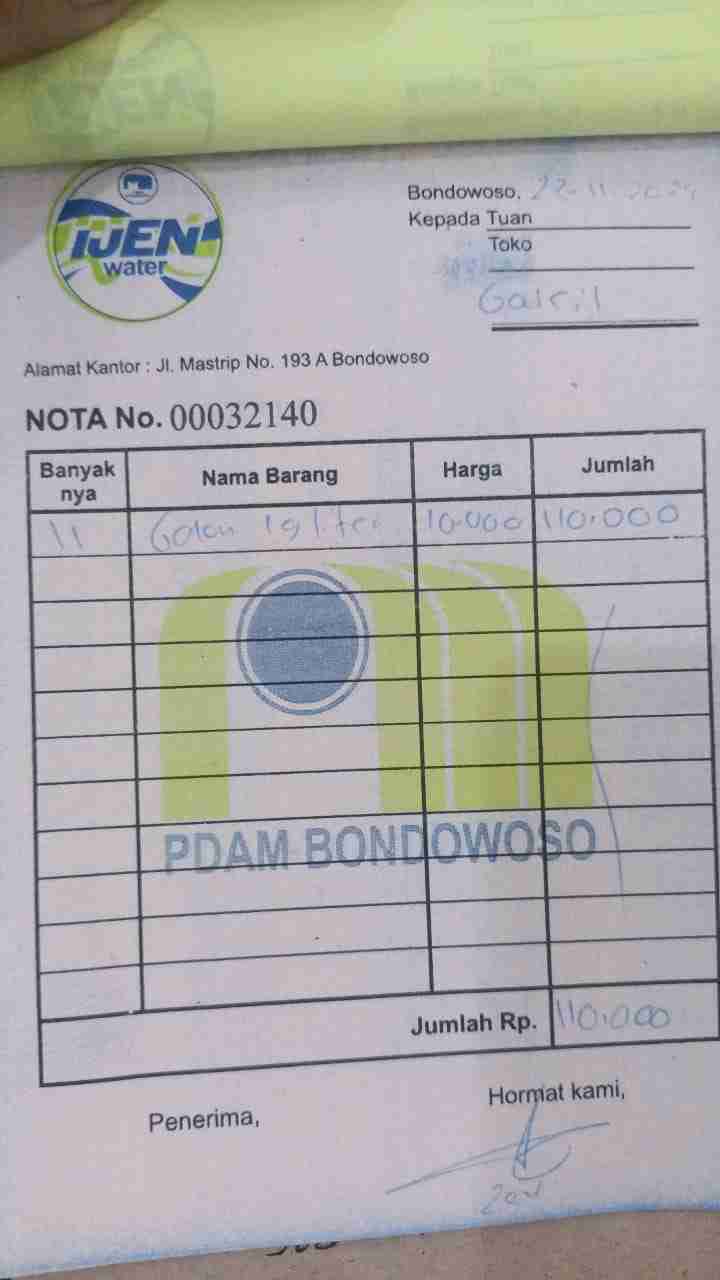 IJEN
water
Bondowoso, 22-11-2024
Kepada Tuan
Toko
Galeril
Alamat Kantor : Jl. Mastrip No. 193 A Bondowoso
NOTA No. 00032140
Banyak nya Nama Barang Harga Jumlah
11 Galon 19 liter 10.000 110.000
PDAM BONDOWOSO
Jumlah Rp. 110.000
Penerima, Hormat kami,